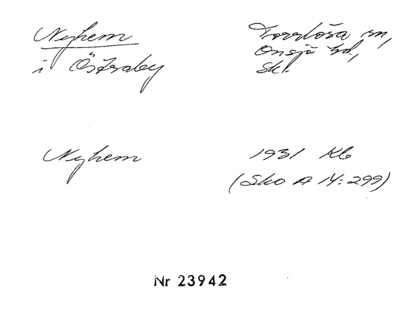 Nyhem
i Östraby
Torrlösa sn,
Onsjö hd,
Skl.
Nyhem
1931 Kb
(Sko A 14:299)
Nr 23942